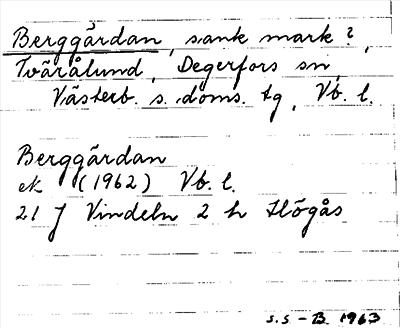 Berggårdan, sank mark?,
Tvärålund, Degerfors sn,
Västerb. s. doms. tg, Vb. l.
Berggårdan
ek (1962) Vb. l.
21 J Vindeln 2 h Högås
S.S-B. 1963